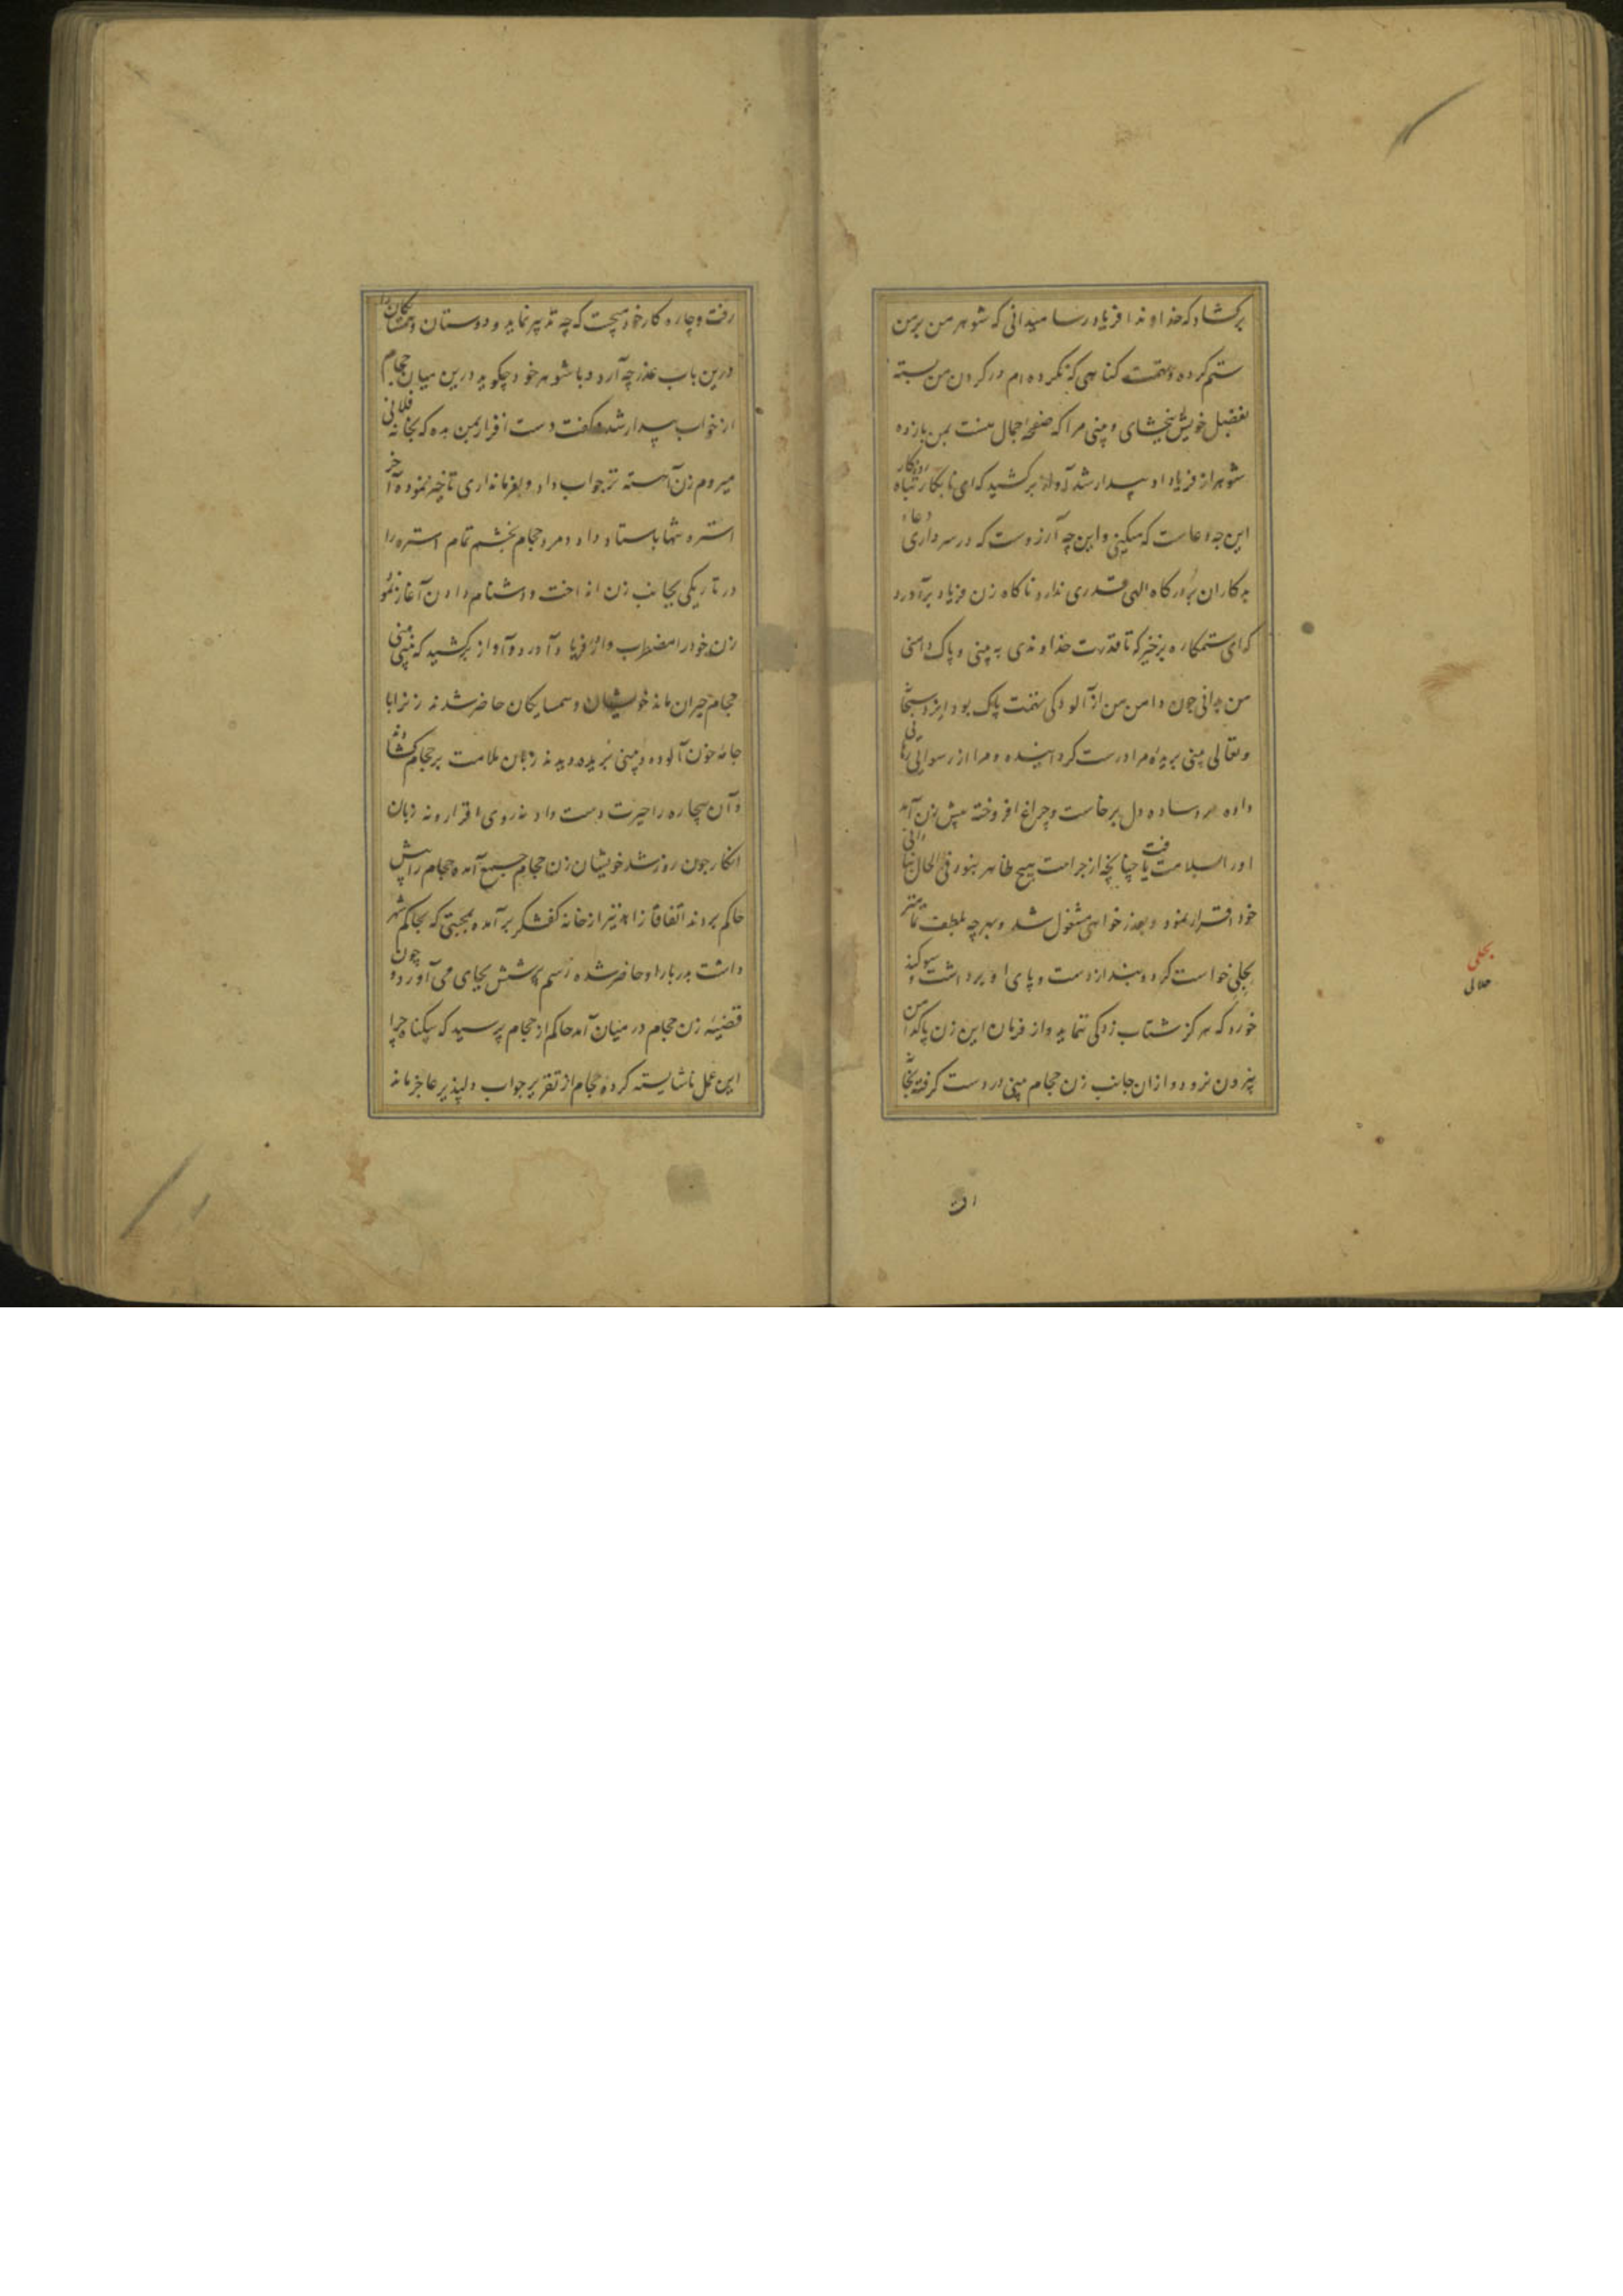 برکشاد که خداوندا فریادرسا میدانی که شوهر من بر من
ستم کرده و تهمت کناهی که نکرده ام در کردن من بسته
بفضل خویش ببخشای و بینی مرا که صفحهٔ جمال منست بمن باز ده
شوهر از فریاد او بیدار شد آواز برکشید که ای نابکار تباه روزکار
این چه دعاست که میکنی و این چه آرزوست که در سر داری دعاء
بدکاران بر درکاه الهی قدری ندارد ناکاه زن فریاد برآورد
که ای ستمکاره برخیز که تا قدرت خداوندی به بینی و پاک دامنی
من بدانی چون دامن من از آلودکی تهمت پاک بود ایزد سبحانه
و تعالی بینی بریده مرا درست کردانیده و مرا از رسوایی رهایی
داده مرد ساده دل برخاست و چراغ افروخته پیش زن آمد
او را بسلامت یافت چنانچه از جراحت هیچ ظاهر نبود فی الحال بنادانی
خود اقرار نمود و بعذرخواهی مشغول شد و بهر چه بلطف تمامتر
بحلی خواست کرد و بند از دست و پای او برداشت و سوکند
خورد که هرکز شتاب زدکی ننماید و از فرمان این زن پاکدامن
بیرون نرود و از ان جانب زن حجام بینی در دست کرفته بخانه
بحلی
حلالی
رفت و چاره کار خود میجست که چه تدبیر نماید و دوستان و همسایکان را
درین باب عذر چه آرد و با شوهر خود چکوید درین میان حجام
از خواب بیدار شده کفت دست افزار بمن ده که بخانه فلانی
میروم زن آهسته تر جواب داد و بفرمانداری تاخیر نموده آخر
استره تنها باستاد داد و مرد حجام بخشم تمام استره را
در تاریکی بجانب زن انداخت و دشنام دادن آغاز نمود
زن خود را مضطرب وار فریاد آورد و آواز برکشید که بینی بینی
حجام حیران ماند خویشان و همسایکان حاضر شدند زنرا با
جامه خون آلوده و بینی بریده دیدند زبان ملامت بر حجام کشادند
و آن بیچاره را حیرت دست داد نه روی اقرار و نه زبان
انکار چون روز شد خویشان زن حجام جمع آمده حجام را پیش
حاکم بردند اتفاقا زاهد نیز از خانه کفشکر برآمده بمحبتی که بحاکم شهر
داشت بدربار او حاضر شده رسم پرسش بجای می آورد و چون
قضیهٔ زن حجام در میان آمد حاکم از حجام پرسید که بیکناه چرا
این عمل ناشایسته کرده حجام از تقریر جواب دلپذیر عاجز ماند